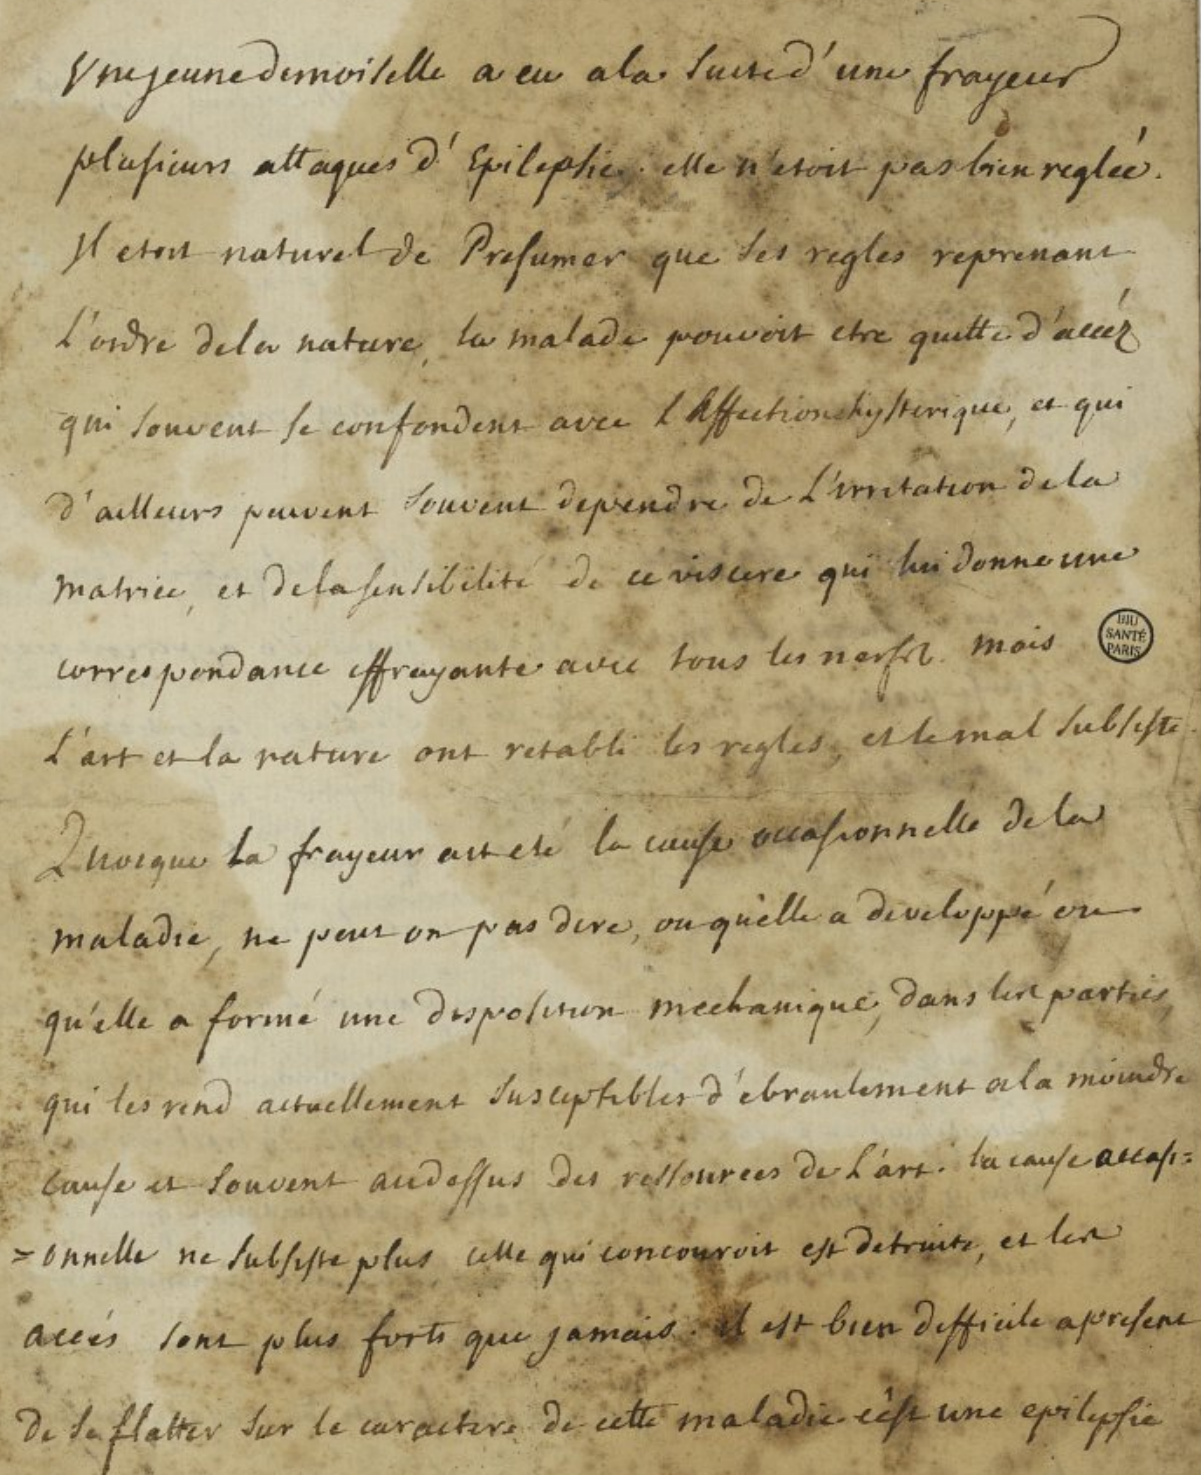 Une jeune demoiselle a eu a la suite d'une frayeur
plusieurs attaques d'Epilepsie. elle n'etoit pas bien reglée.
Il etoit naturel de Presumer que ses regles reprenant
L'ordre de la nature, la malade pouvoit etre quitte d'accéz
qui souvent se confondent avec l'Affection hysterique, et qui
d'ailleurs peuvent souvent dependre de L'irritation de la
matrice, et de la sensibilité de ce viscere qui lui donne une
correspondance effrayante avec tous les nerfs. mais
BIU
SANTÉ
PARIS
L'art et la nature ont retabli les regles, et le mal subsiste.
Quoique la frayeur ait eté la cause occasionnelle de la
maladie, ne peut on pas dire, ou qu'elle a developpé ou
qu'elle a formé une disposition mechanique, dans les parties,
qui les rend actuellement susceptibles d'ebranlement a la moindre
cause et souvent audessus des ressources de L'art. la cause occasi=
=onnelle ne subsiste plus celle qui concouroit est detruite, et les
accés sont plus forts que jamais. il est bien difficile apresent
de se flatter sur le caractere de cette maladie c'est une epilepsie